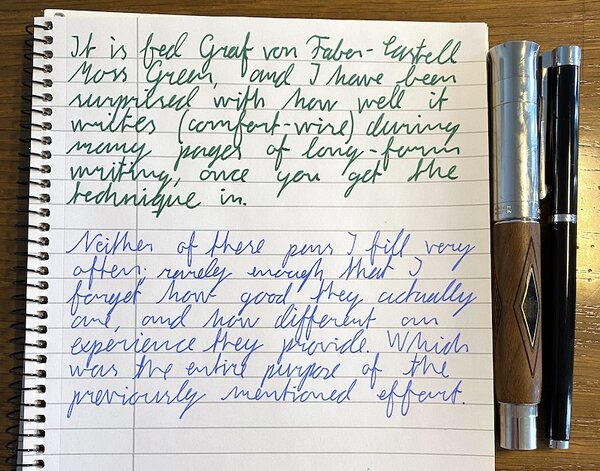 It is fed Graf von Faber-Castell
Moss Green, and I have been
surprised with how well it
writes (comfort-wise) during
many pages of long-form
writing, once you get the
technique in.
Neither of these pens I fill very
often; rarely enough that I
forget how good they actually
are, and how different an
experience they provide. Which
was the entire purpose of the
previously mentioned effort.